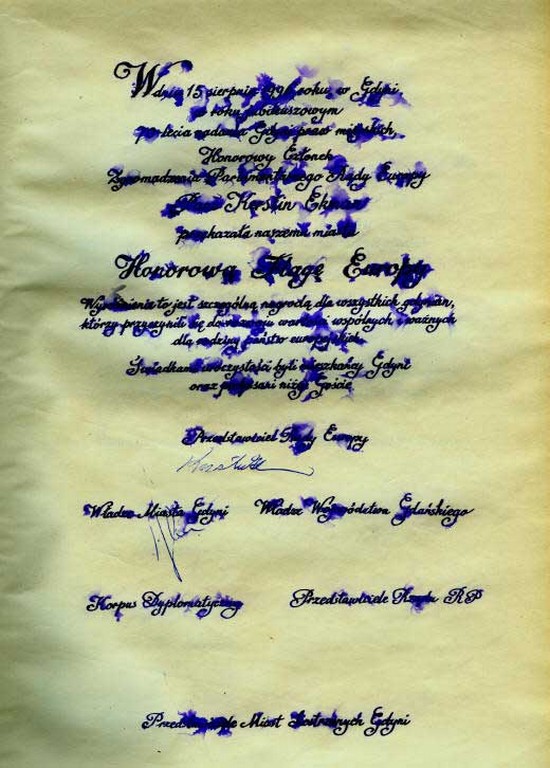 W dniu 15 sierpnia 1996 roku, w Gdyni
w roku jubileuszowym
70-lecia nadania Gdyni praw miejskich,
Honorowy Członek
Zgromadzenia Parlamentarnego Rady Europy
Pani Kerstin Ekman
przekazała naszemu miastu
Honorową Flagę Europy
Wyróżnienie to jest szczególną nagrodą dla wszystkich gdynian,
którzy przyczynili się do rozwoju wartości wspólnych i ważnych
dla rodziny państw europejskich.
Świadkami uroczystości byli mieszkańcy Gdyni
oraz podpisani niżej Goście
Przedstawiciel Rady Europy
Władze Miasta Gdyni Władze Województwa Gdańskiego
Korpus Dyplomatyczny Przedstawiciele Rządu RP
Przedstawiciele Miast Siostrzanych Gdyni